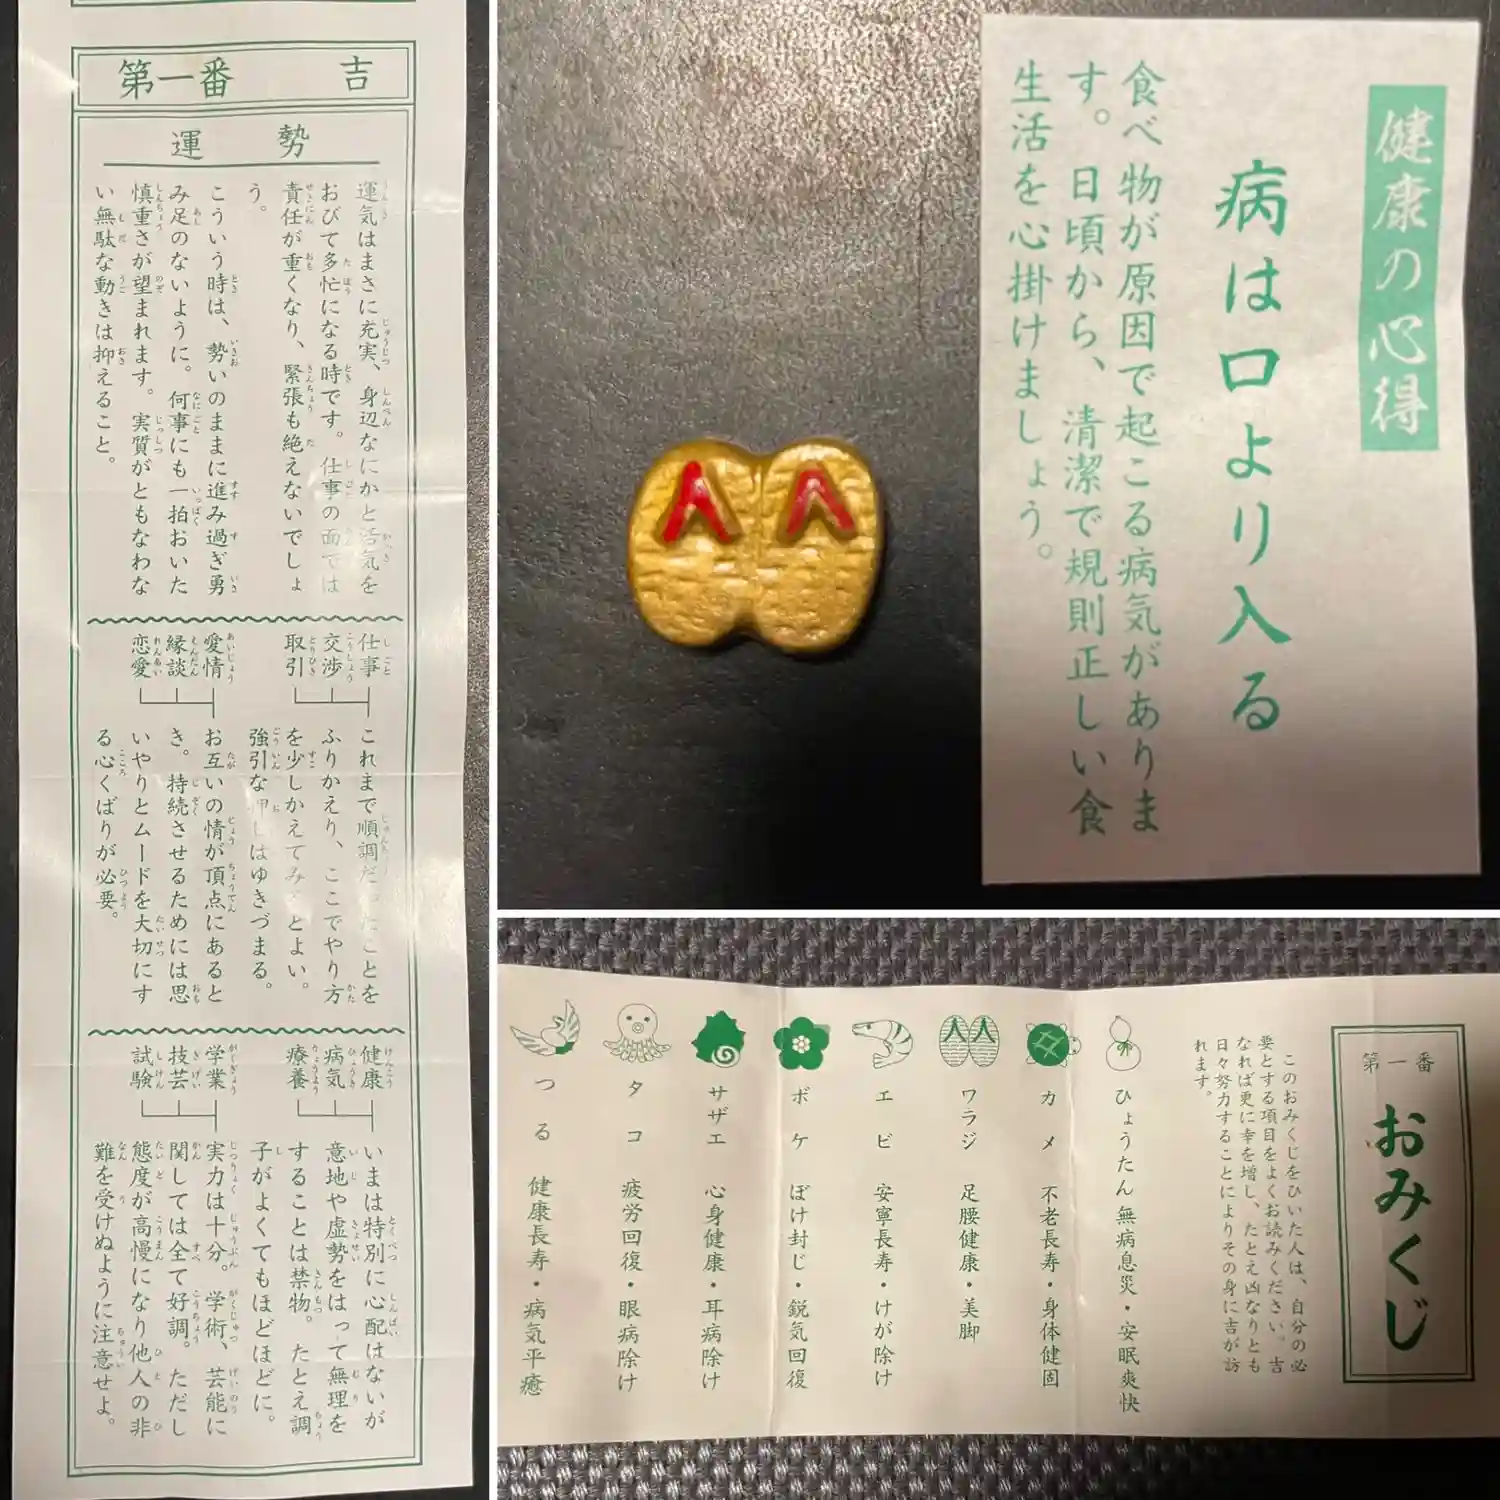 第一番 吉
運勢
運気はまさに充実、身辺なにかと活気を
おびて多忙になる時です。仕事の面では
責任が重くなり、緊張も絶えないでしょ
う。
こういう時は、勢いのままに進み過ぎ勇
み足のないように。何事にも一拍おいた
慎重さが望まれます。実質がともなわな
い無駄な動きは抑えること。
仕事
交渉
取引
これまで順調だったことを
ふりかえり、ここでやり方
を少しかえてみるとよい。
強引な押しはゆきづまる。
愛情
縁談
恋愛
お互いの情が頂点にあると
き。持続させるためには思
いやりとムードを大切にす
る心くばりが必要。
健康
病気
療養
いまは特別に心配はないが
意地や虚勢をはって無理を
することは禁物。たとえ調
子がよくてもほどほどに。
学業
技芸
試験
実力は十分。学術、芸能に
関しては全て好調。ただし
態度が高慢になり他人の非
難を受けぬように注意せよ。
健康の心得
病は口より入る
食べ物が原因で起こる病気がありま
す。日頃から、清潔で規則正しい食
生活を心掛けましょう。
第一番
おみくじ
このおみくじをひいた人は、自分の必
要とする項目をよくお読みください。吉
なれば更に幸を増し、たとえ凶なりとも
日々努力することによりその身に吉が訪
れます。
ひょうたん 無病息災・安眠爽快
カメ 不老長寿・身体健固
ワラジ 足腰健康・美脚
エビ 安寧長寿・けが除け
ボケ ぼけ封じ・鋭気回復
サザエ 心身健康・耳病除け
タコ 疲労回復・眼病除け
つる 健康長寿・病気平癒